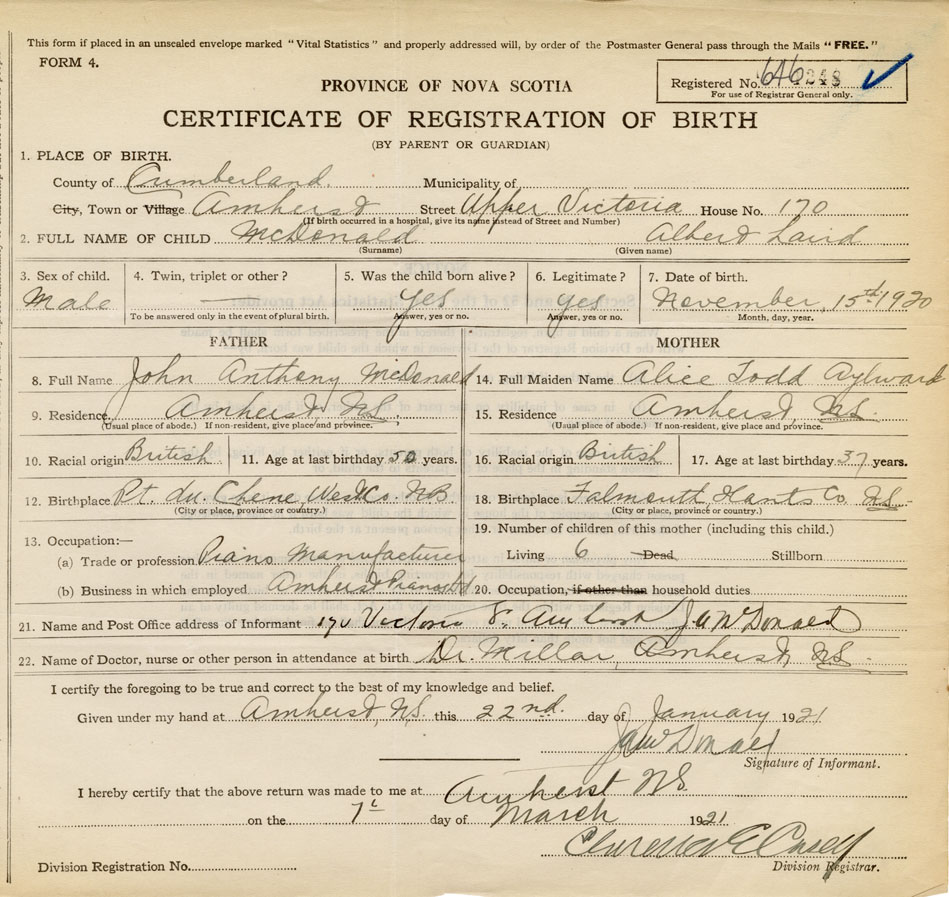 This form if placed in an unsealed envelope marked "Vital Statistics" and properly addressed will, by order of the Postmaster General pass through the Mails "FREE."
FORM 4.
Registered No. 646248
For use of Registrar General only.
PROVINCE OF NOVA SCOTIA
CERTIFICATE OF REGISTRATION OF BIRTH
(BY PARENT OR GUARDIAN)
1. PLACE OF BIRTH.
County of Cumberland. Municipality of
City, Town or Village Amherst Street Upper Victoria House No. 170
(If birth occurred in a hospital, give its name instead of Street and Number)
2. FULL NAME OF CHILD McDonald Albert Laird
(Surname) (Given name)
3. Sex of child. 4. Twin, triplet or other? 5. Was the child born alive? 6. Legitimate? 7. Date of birth.
Male — Yes Yes November, 15th 1920
To be answered only in the event of plural birth. Answer, yes or no. Answer, yes or no. Month, day, year.
FATHER MOTHER
8. Full Name John Anthony McDonald 14. Full Maiden Name Alice Todd Aylward
9. Residence Amherst, N.S. 15. Residence Amherst, N.S.
(Usual place of abode.) If non-resident, give place and province. (Usual place of abode.) If non-resident, give place and province.
10. Racial origin British 11. Age at last birthday 50 years. 16. Racial origin British 17. Age at last birthday 37 years.
12. Birthplace Pt. du Chene West Co. N.B. 18. Birthplace Falmouth Hants Co N.S.
(City or place, province or country.) (City or place, province or country.)
13. Occupation:— 19. Number of children of this mother (including this child.)
(a) Trade or profession Piano Manufacturer Living 6 Dead Stillborn
(b) Business in which employed Amherst Pianos Ltd 20. Occupation, if other than household duties
21. Name and Post Office address of Informant 170 Victoria S. Amherst J A McDonald
22. Name of Doctor, nurse or other person in attendance at birth Dr. Millar, Amherst, N.S.
I certify the foregoing to be true and correct to the best of my knowledge and belief.
Given under my hand at Amherst, N.S. this 22nd. day of January 1921
J A McDonald
Signature of Informant.
I hereby certify that the above return was made to me at Amherst N.S.
on the 7th day of March 1921
Clarence E Casey
Division Registrar.
Division Registration No.